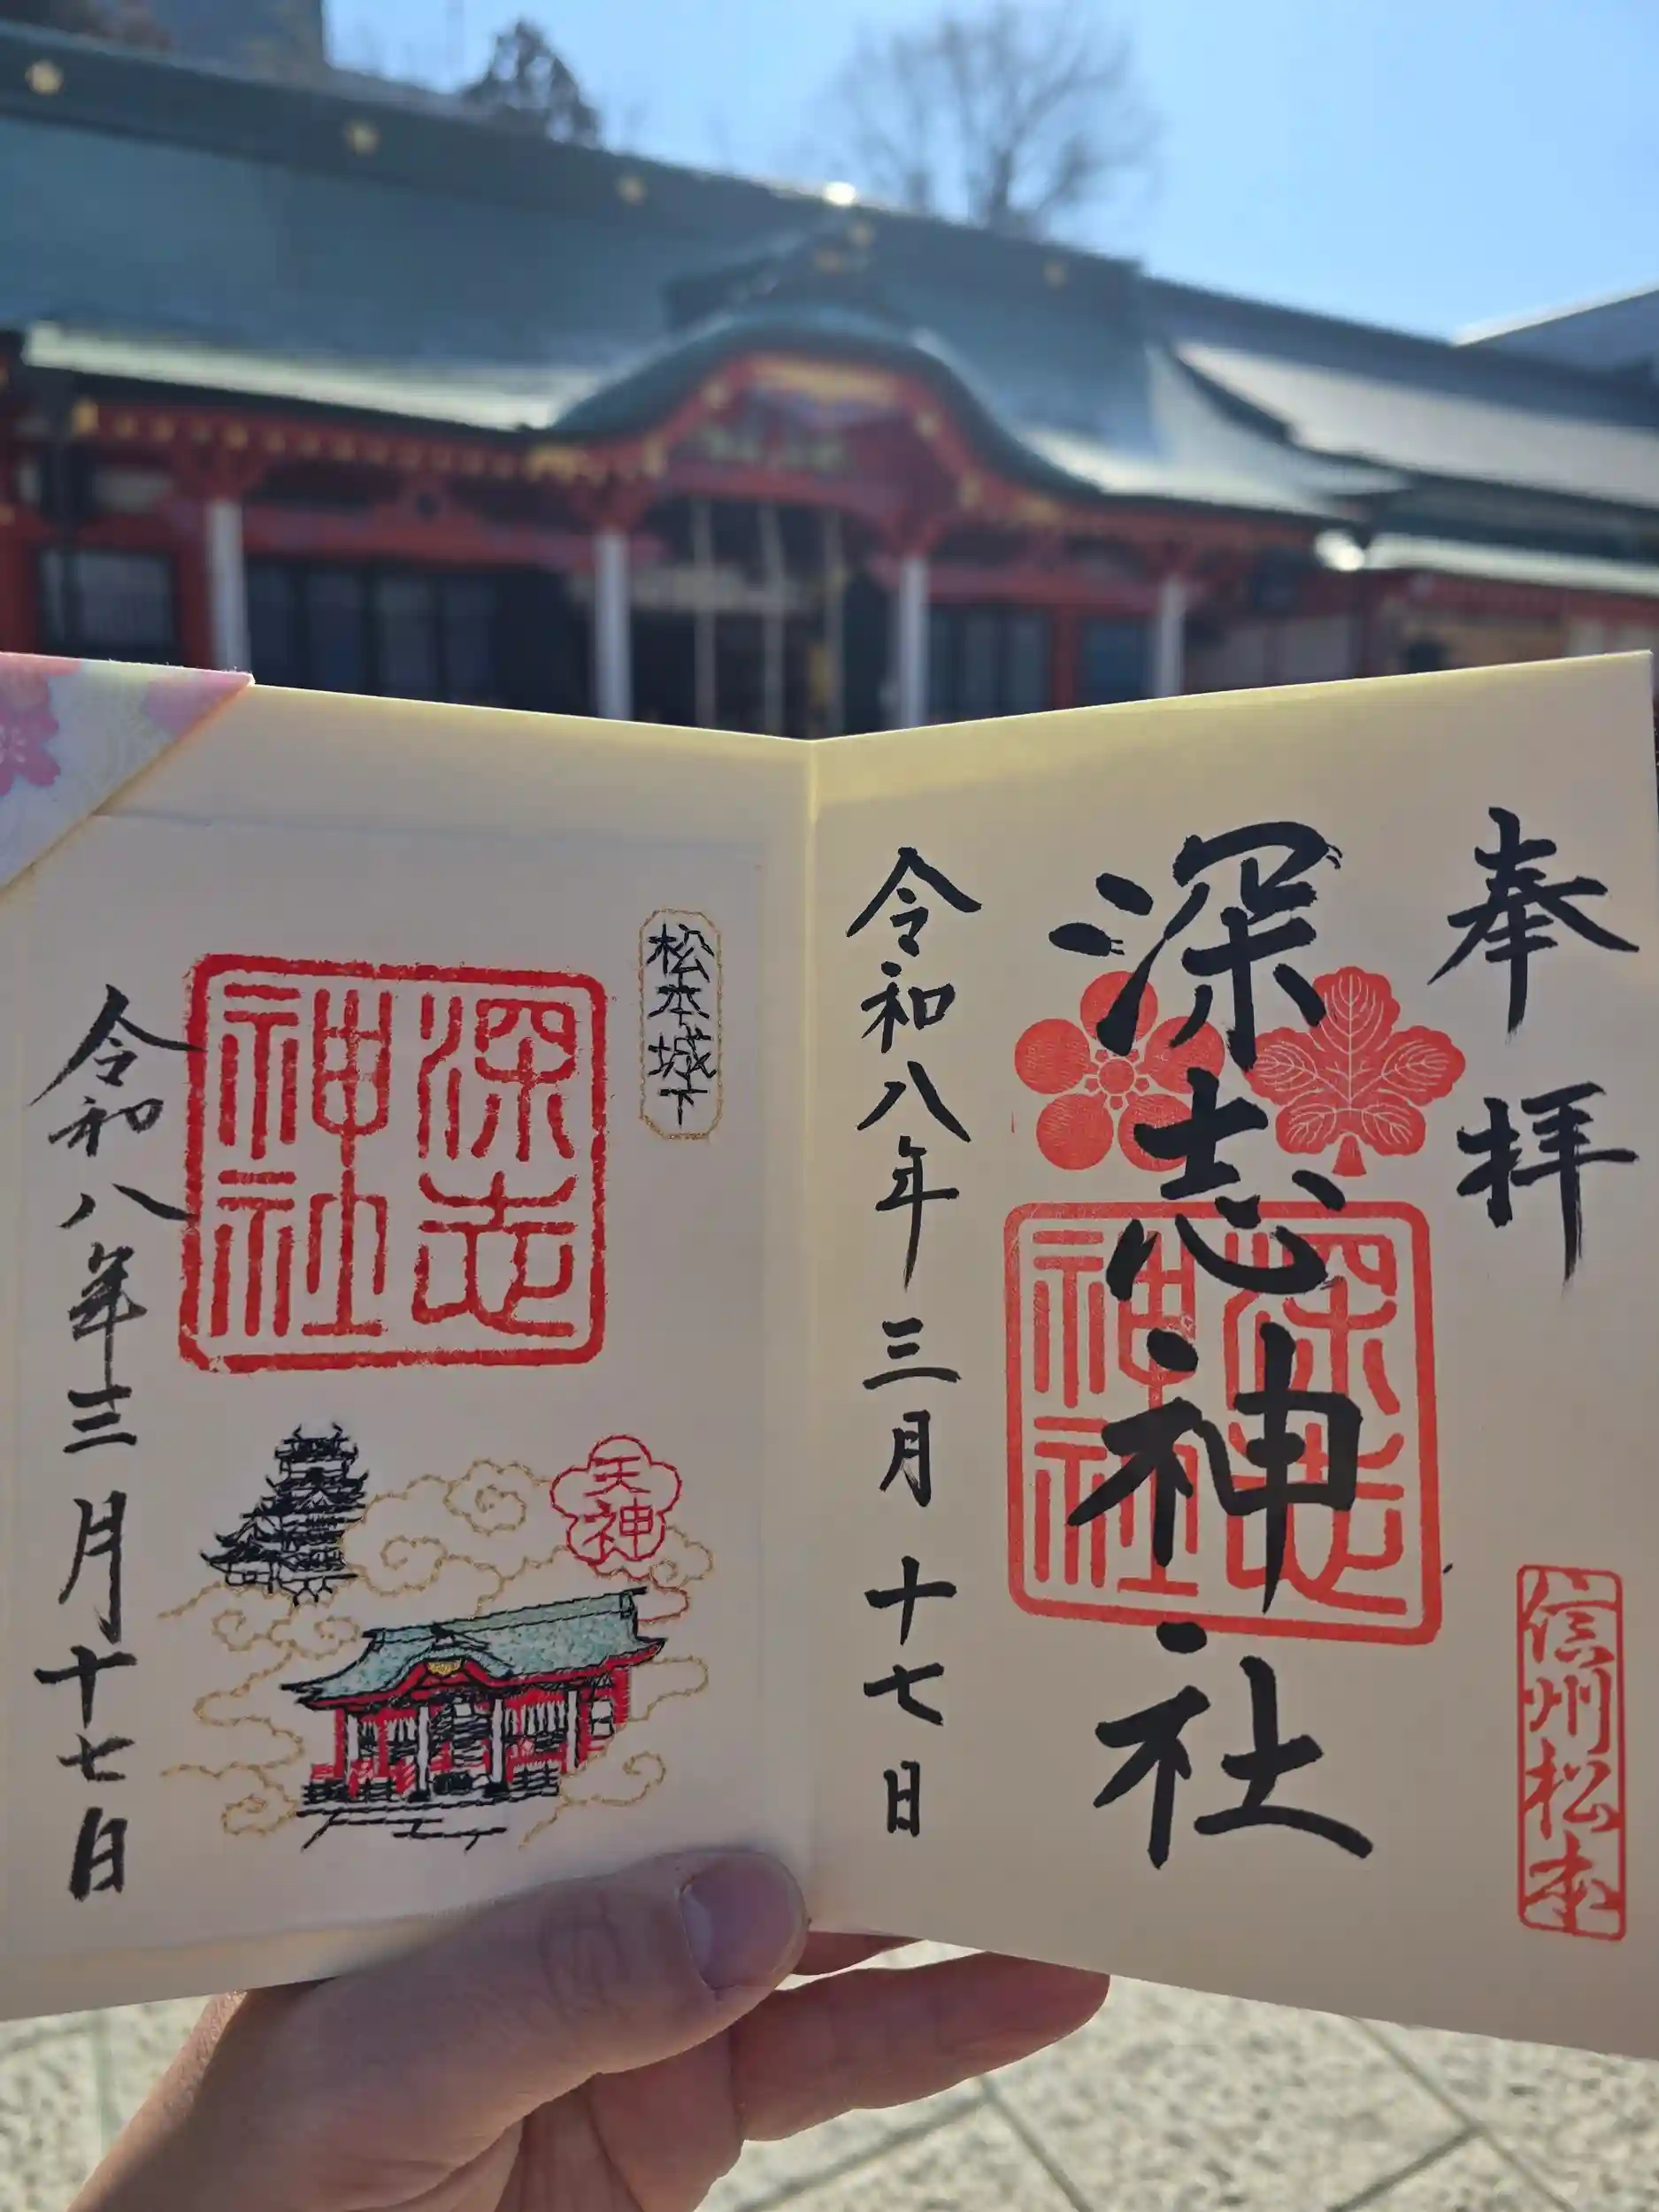 奉拝
深志神社
深志神社
信州松本
令和八年三月十七日
松本城下
深志神社
天神
令和八年三月十七日